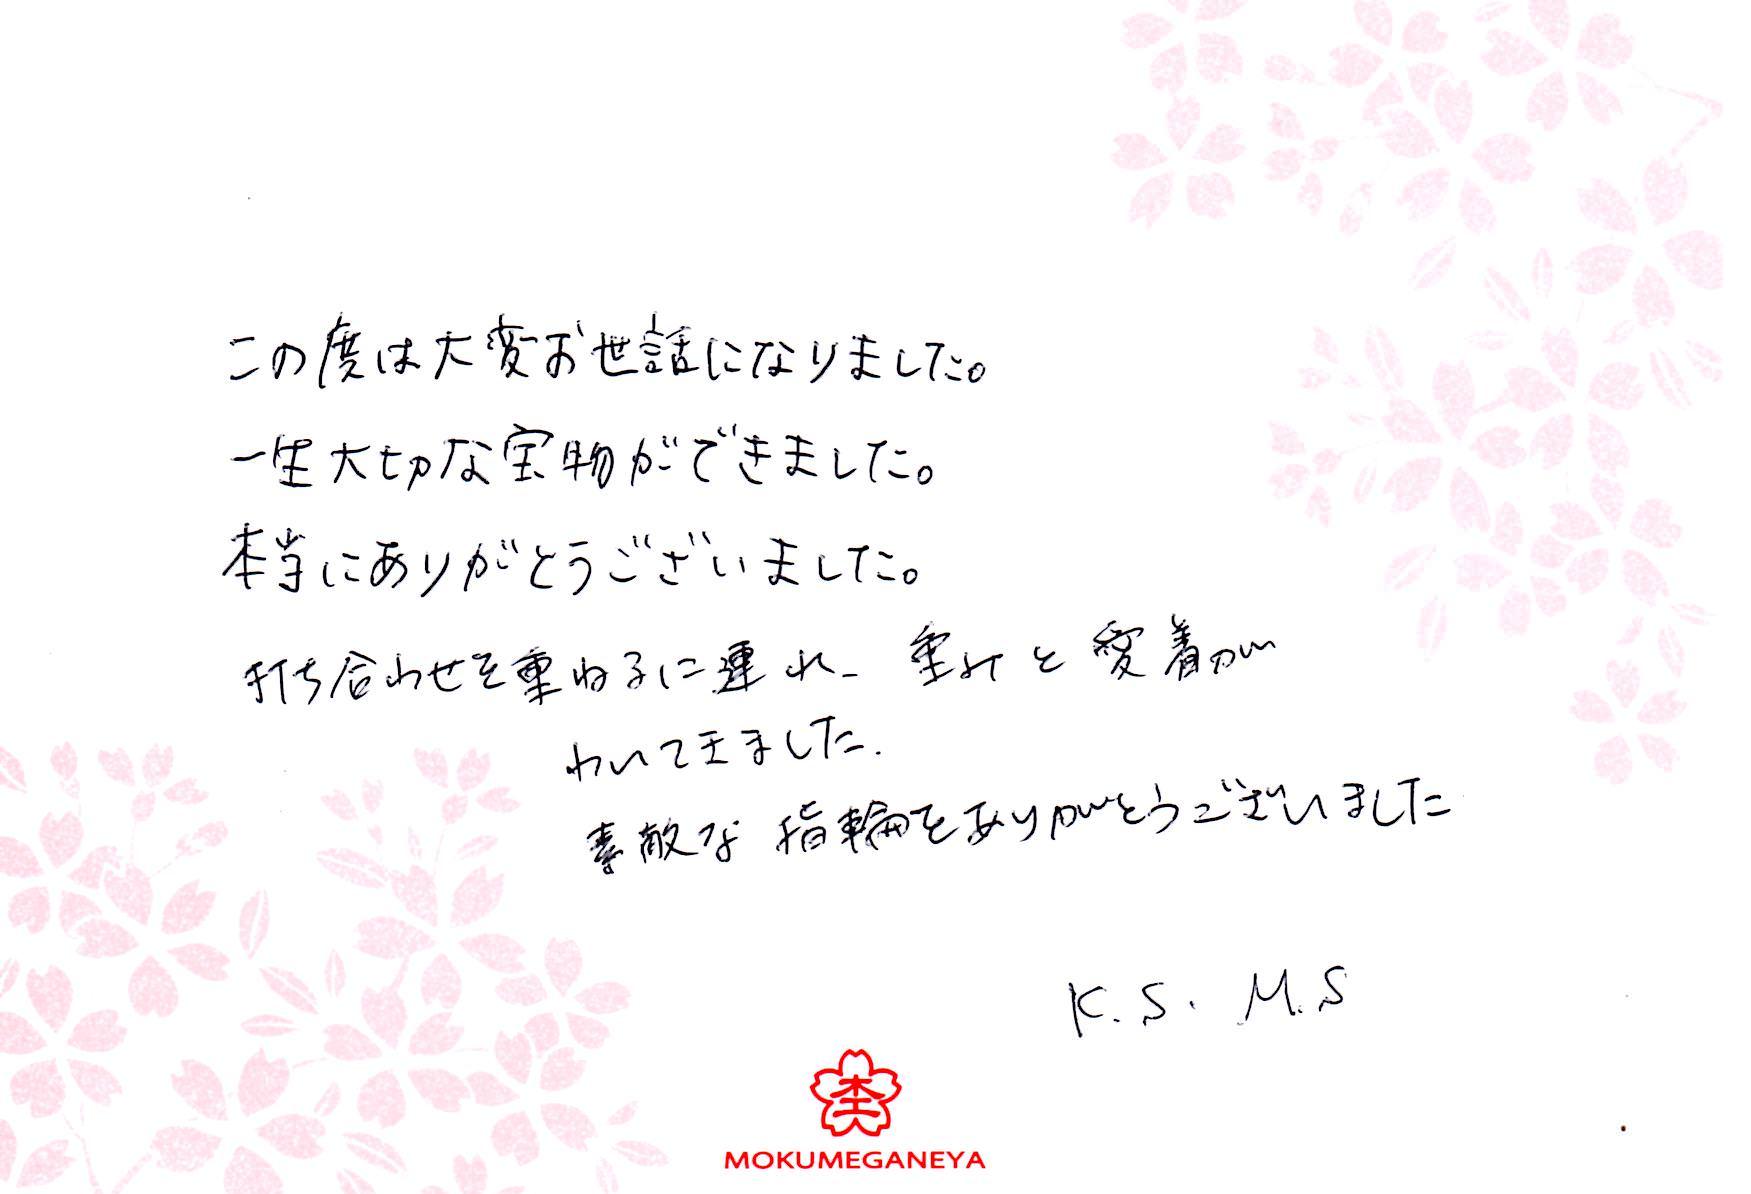 この度は大変お世話になりました。
一生大切な宝物ができました。
本当にありがとうございました。
打ち合わせを重ねるに連れ、重みと愛着が
わいてきました.
素敵な指輪をありがとうございました
K.S. M.S
杢
MOKUMEGANEYA